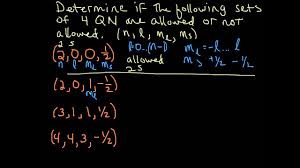 Determine if the following sets
of 4 QN are allowed or not
allowed. (n, l, mℓ, ms)
2 s
(2, 0, 0, 1/2)
n l mℓ ms
0..(n-1)
mℓ = -l ... l
ms +1/2 -1/2
allowed
2s
(2, 0, 1, -1/2)
mℓ
(3, 1, 1, 1/2)
(4, 4, 3, -1/2)